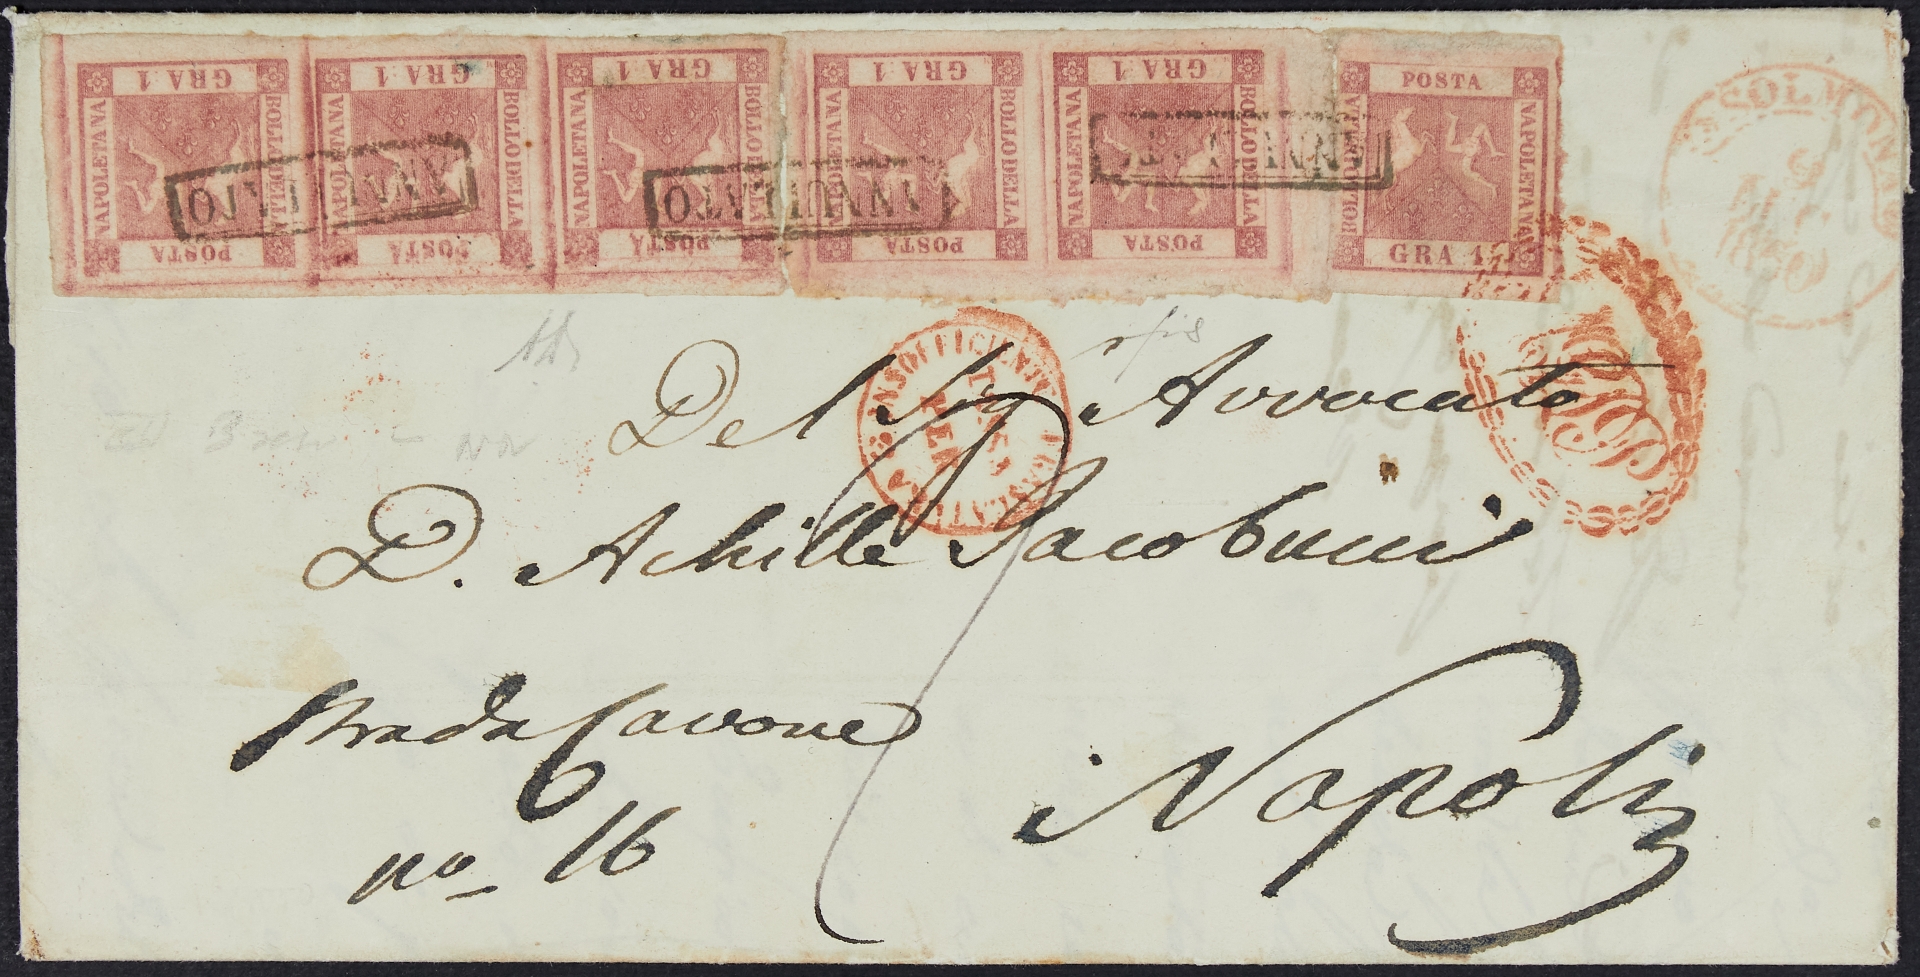 GRA 1 GRA 1 GRA 1 GRA 1 GRA 1 POSTA
NAPOLETANA BOLLO DELLA NAPOLETANA BOLLO DELLA NAPOLETANA BOLLO DELLA NAPOLETANA BOLLO DELLA NAPOLETANA BOLLO DELLA BOLLO DELLA NAPOLETANA
POSTA POSTA POSTA POSTA POSTA GRA 1
ANNULLATO
ANNULLATO
ANNULLATO
SOLMONA
1860
FRANCATURA INSOFFICIENTE
PER
Del Sig Avvocato
D. Achille Jacobucci
Strada Cavone
no 16
Napoli